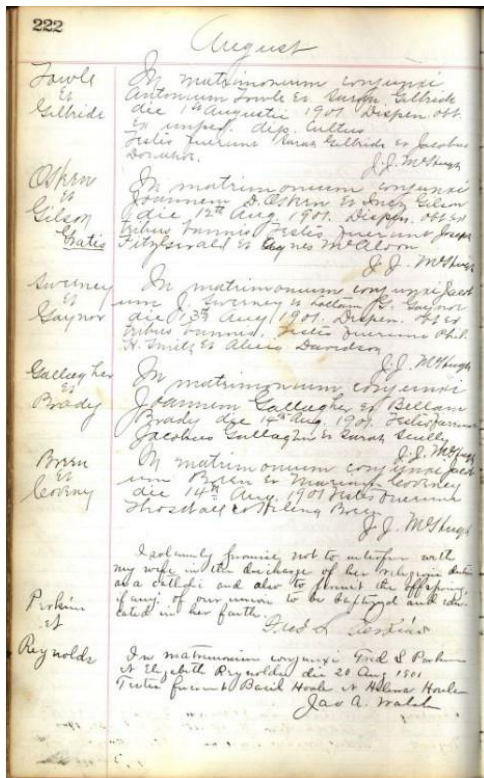 222
August
Fowle
et
Gilbride
In matrimonium conjunxi
Antonium Fowle et Sarah Gilbride
die 1st Augustii 1901. Dispen. obt.
ex imped. disp. Cultus
Testes fuerunt Sarah Gilbride et Jacobus
Donahoe.
J. J. McHugh
Osken
et
Gilson
Gratis
In matrimonium conjunxi
Joannem D. Osken et Inez Gilson
die 12th Aug. 1901. Dispen. obt ex
tribus bannis. Testes fuerunt Joseph
Fitzgerald et Agnes McAloon
J. J. McHugh
Sweeney
et
Gaynor
In matrimonium conjunxi Jacob
um J. Sweeney et Gaynor
die 13th Aug 1901. Dispen. obt ex
tribus bannis. Testes fuerunt Phil.
H. Smith et Alicia Davidson
J. J. McHugh
Gallagher
et
Brady
In matrimonium conjunxi
Joannem Gallagher et Bellam
Brady die 14th Aug. 1901. Testes fuerunt
Jacobus Gallagher et Sarah Scully
J. J. McHugh
Breen
et
Coveney
In matrimonium conjunxi Jacob
um Breen et Mariam Coveney
die 14th Aug. 1901 Testes fuerunt
et Breen
J. J. McHugh
I solemnly promise not to interfere with
my wife in the discharge of her religious duties
as a catholic and also to permit the offspring,
if any, of our union to be baptized and edu-
cated in her faith.
Fred S. Perkins
Perkins
et
Reynolds
In matrimonium conjunxi Fred S Perkins
et Elizabeth Reynolds die 20 Aug 1901
Testes fuerunt Basil Houle et Helena Houle
Jas A. Walsh